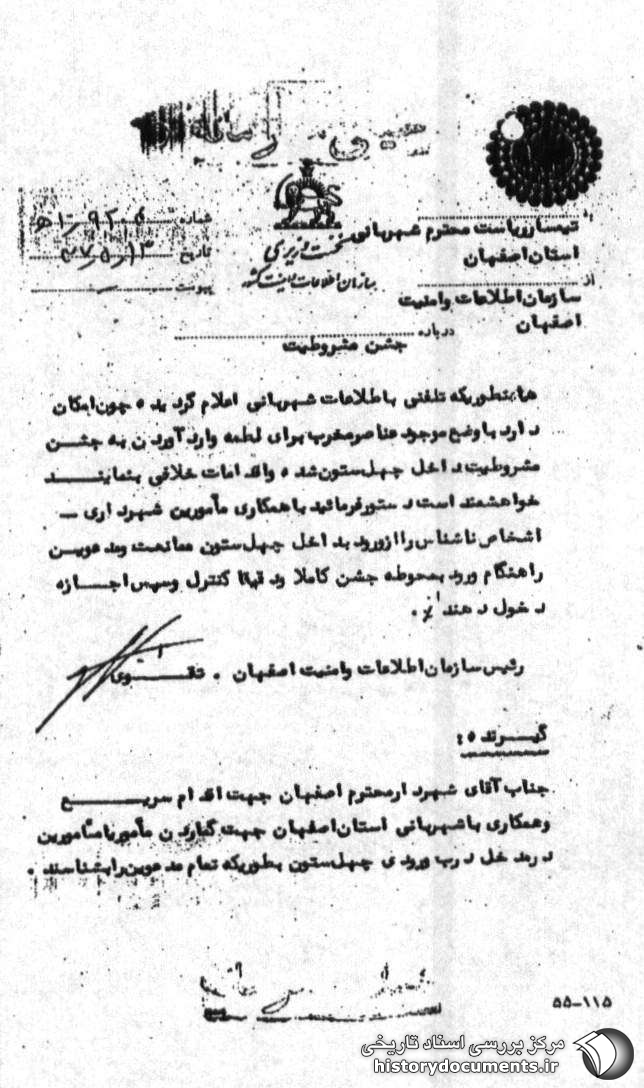 شماره ۹۲۰۶/ه‍ ۱
تاریخ ۱۳/۵/۳۷
پیوست
نخست وزیری
سازمان اطلاعات و امنیت کشور
به تیمسار ریاست محترم شهربانی
استان اصفهان
از سازمان اطلاعات و امنیت
اصفهان
درباره جشن مشروطیت
همانطوریکه تلفنی باطلاعات شهربانی اعلام گردیده چون امکان
دارد با وضع موجود عناصر مخرب برای لطمه وارد آوردن به جشن
مشروطیت داخل چهل ستون شده واقدامات خلافی بنمایند
خواهشمند است دستور فرمائید با همکاری مأمورین شهرداری –
اشخاص ناشناس را از ورود بداخل چهل ستون ممانعت ومدعوین
را هنگام ورود بمحوطه جشن کاملا ودقیقا کنترل وسپس اجازه
دخول دهند .
رئیس سازمان اطلاعات وامنیت اصفهان . تقوی
گیرنده :
جناب آقای شهردار محترم اصفهان جهت اقدام سریع
وهمکاری با شهربانی استان اصفهان جهت گماردن مأمور یا مأمورین
در مدخل درب ورودی چهل ستون بطوریکه تمام مدعوین را بشناسند .
۵۵-۱۱۵
مرکز بررسی اسناد تاریخی
historydocuments.ir